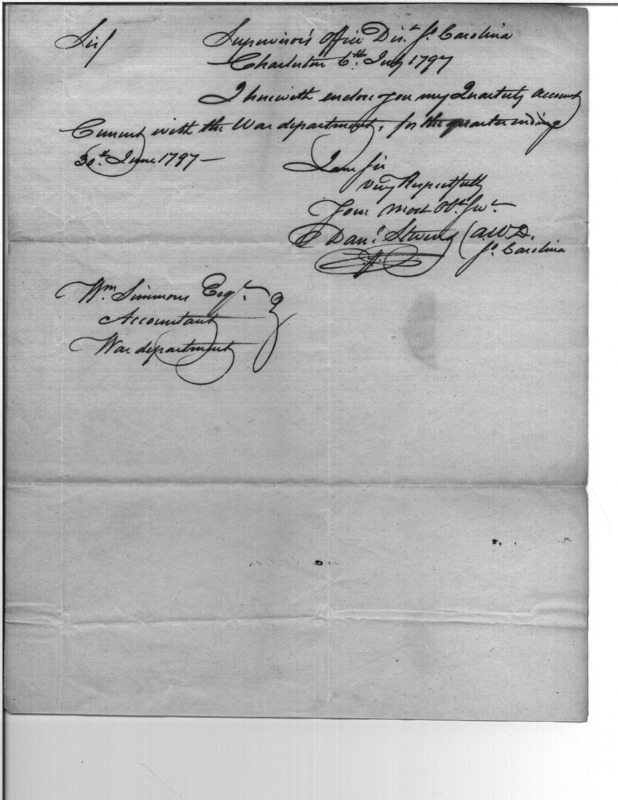 Sir/ Supervisor's Office Dist. So. Carolina
Charleston 6th. July 1797
I herewith enclose you my Quarterly Account
Current with the War department, for the quarter ending
30th. June 1797 —
I am Sir
Very Respectfully
Your most Obt. Servt.
Danl. Stevens (AWD.
So. Carolina
Wm. Simmons Esqr.
Accountant
War department